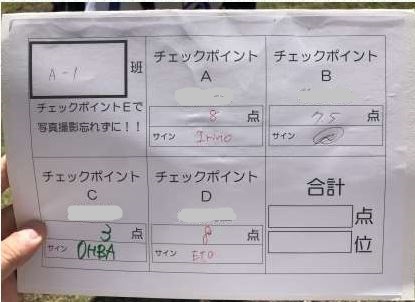 A-1 班
チェックポイントEで
写真撮影忘れずに！！
チェックポイント
A
8 点
サイン Irino
チェックポイント
B
7.5 点
サイン
チェックポイント
C
3 点
サイン OHBA
チェックポイント
D
8 点
サイン ETO
合計
点
位